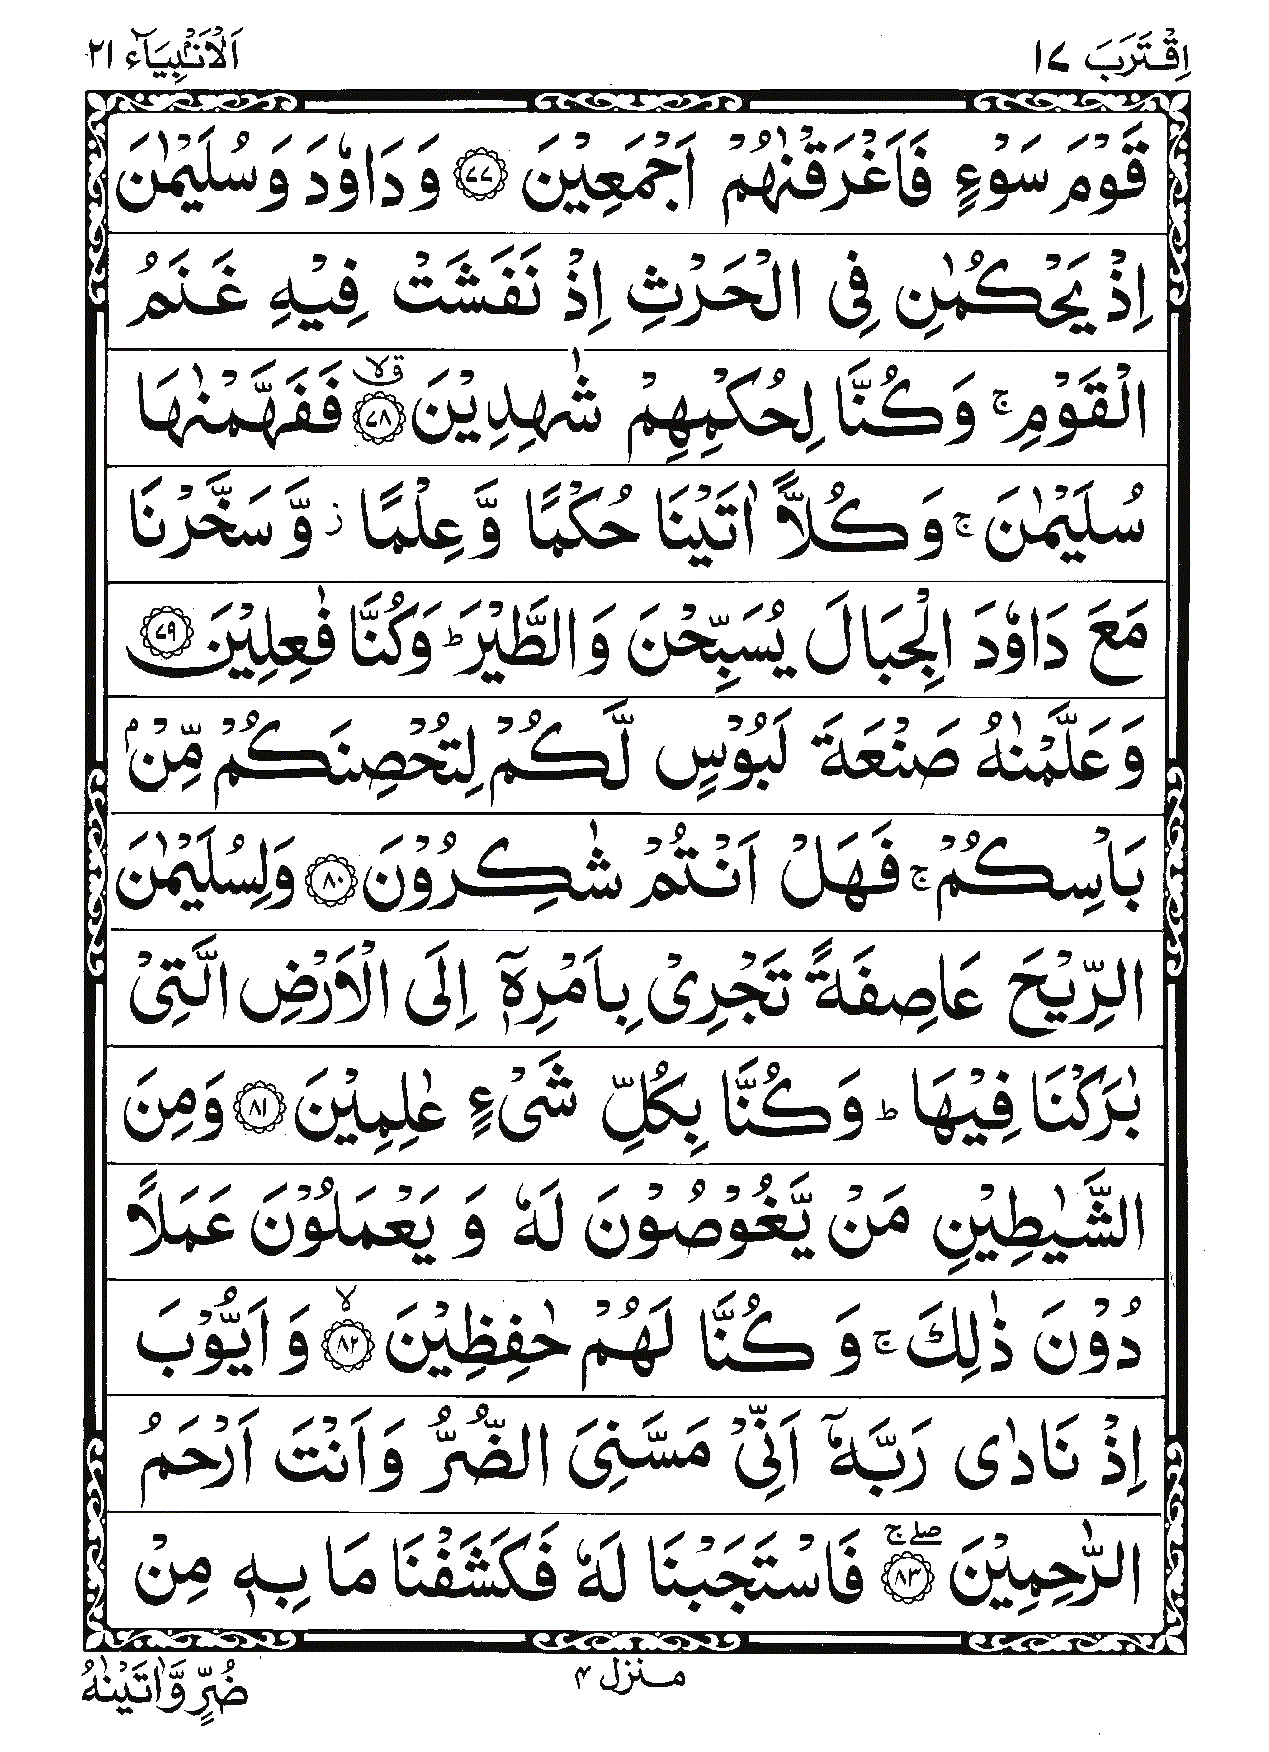 اِقْتَرَبَ ١٧
اَلْاَنْۢبِيَآء ٢١
قَوْمَ سَوْءٍ فَاَغْرَقْنٰهُمْ اَجْمَعِيْنَ ۝٧٧ وَ دَاوٗدَ وَ سُلَيْمٰنَ
اِذْ يَحْكُمٰنِ فِى الْحَرْثِ اِذْ نَفَشَتْ فِيْهِ غَنَمُ
الْقَوْمِ ۚ وَ كُنَّا لِحُكْمِهِمْ شٰهِدِيْنَ ۝٧٨ ۙق فَفَهَّمْنٰهَا
سُلَيْمٰنَ ۚ وَ كُلًّا اٰتَيْنَا حُكْمًا وَّ عِلْمًا ز وَّ سَخَّرْنَا
مَعَ دَاوٗدَ الْجِبَالَ يُسَبِّحْنَ وَ الطَّيْرَ ؕ وَ كُنَّا فٰعِلِيْنَ ۝٧٩
وَ عَلَّمْنٰهُ صَنْعَةَ لَبُوْسٍ لَّكُمْ لِتُحْصِنَكُمْ مِّنْۢ
بَاْسِكُمْ ۚ فَهَلْ اَنْتُمْ شٰكِرُوْنَ ۝٨٠ وَ لِسُلَيْمٰنَ
الرِّيْحَ عَاصِفَةً تَجْرِىْ بِاَمْرِهٖۤ اِلَى الْاَرْضِ الَّتِىْ
بٰرَكْنَا فِيْهَا ؕ وَ كُنَّا بِكُلِّ شَىْءٍ عٰلِمِيْنَ ۝٨١ وَ مِنَ
الشَّيٰطِيْنِ مَنْ يَّغُوْصُوْنَ لَهٗ وَ يَعْمَلُوْنَ عَمَلًا
دُوْنَ ذٰلِكَ ۚ وَ كُنَّا لَهُمْ حٰفِظِيْنَ ۝٨٢ ۙ وَ اَيُّوْبَ
اِذْ نَادٰى رَبَّهٗۤ اَنِّىْ مَسَّنِىَ الضُّرُّ وَ اَنْتَ اَرْحَمُ
الرّٰحِمِيْنَ ۝٨٣ ۖۚ فَاسْتَجَبْنَا لَهٗ فَكَشَفْنَا مَا بِهٖ مِنْ
منزل ۴
ضُرٍّ وَّ اٰتَيْنٰهُ